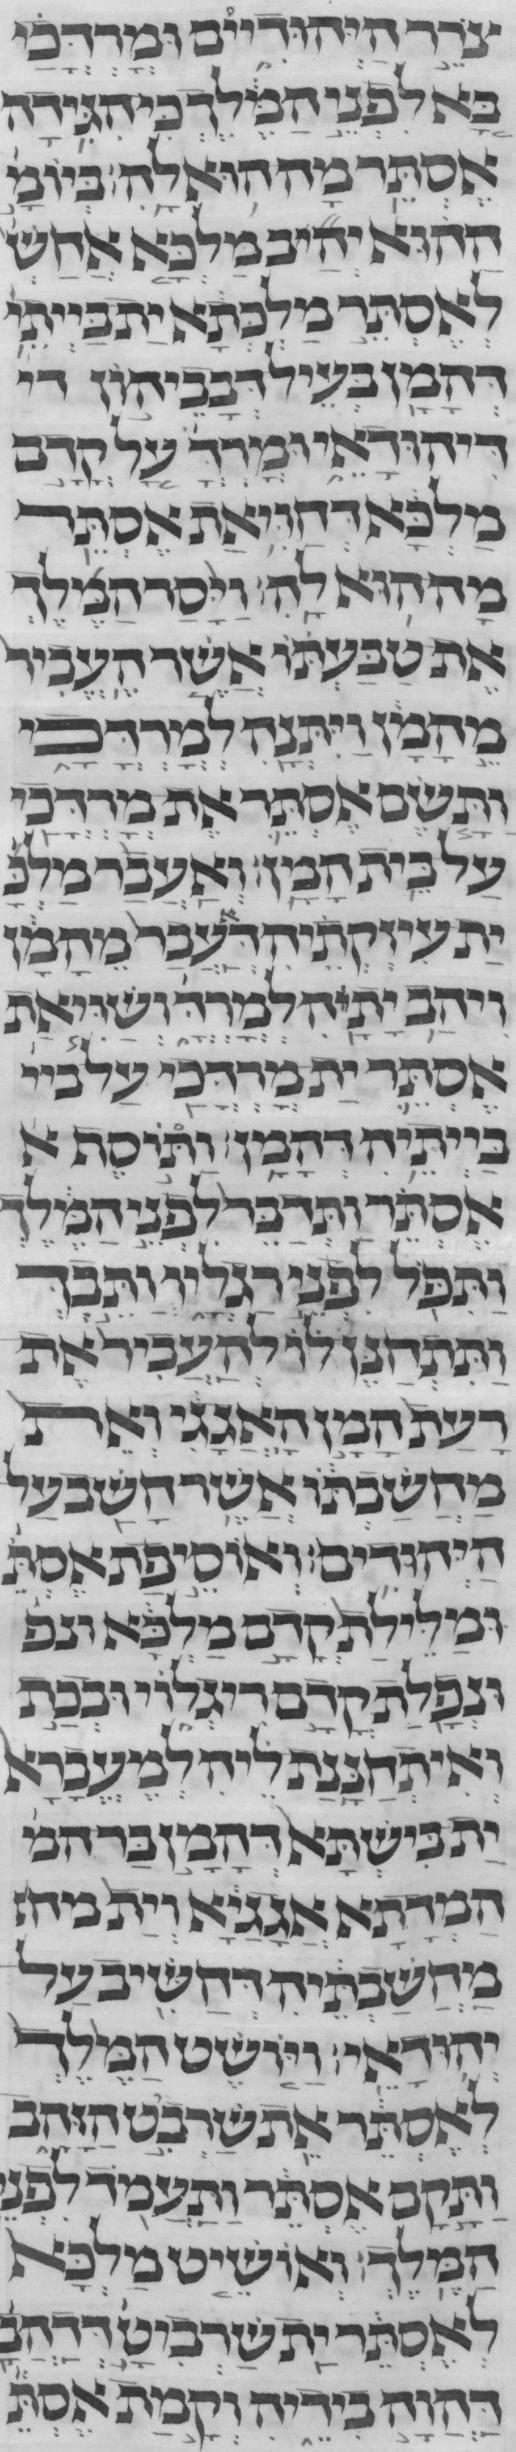 צרר היהודיים ומרדכי
בא לפני המלך כי הגידה
אסתר מה הוא לה׃ ביומ
ההוא יהיב מלכא אחש
לאסתר מלכתא ית בייתי
דהמן בעיל דבביהון די
דיהודאי ומרד על קדם
מלכא דחויאת אסתר
מה הוא לה׃ ויסר המלך
את טבעתו אשר העביר
מהמן ויתנה למרדכי
ותשם אסתר את מרדכי
על בית המן׃ ואעבר מלכ
ית עיזקתיה דאעבר מהמן
ויהב יתיה למרד ושויאת
אסתר ית מרדכי על ביי
בייתיה דהמן׃ ותוסת א
אסתר ותדבר לפני המלך
ותפל לפני רגליו ותבך
ותתחנן לו להעביר את
רעת המן האגגי ואת
מחשבתו אשר חשב על
היהודים׃ ואוסיפת אסת
ומלילת קדם מלכא ונפ
ונפלת קדם ריגלוי ובכת
ואיתחננת ליה למעברא
ית בישתא דהמן בר המ
המדתא אגגיא וית מחז
מחשבתיה דחשיב על
יהודאי׃ ויושט המלך
לאסתר את שרבט הזהב
ותקם אסתר ותעמד לפני
המלך׃ ואושיט מלכא
לאסתר ית שרביט דדהב
דהוה בידיה וקמת אסת